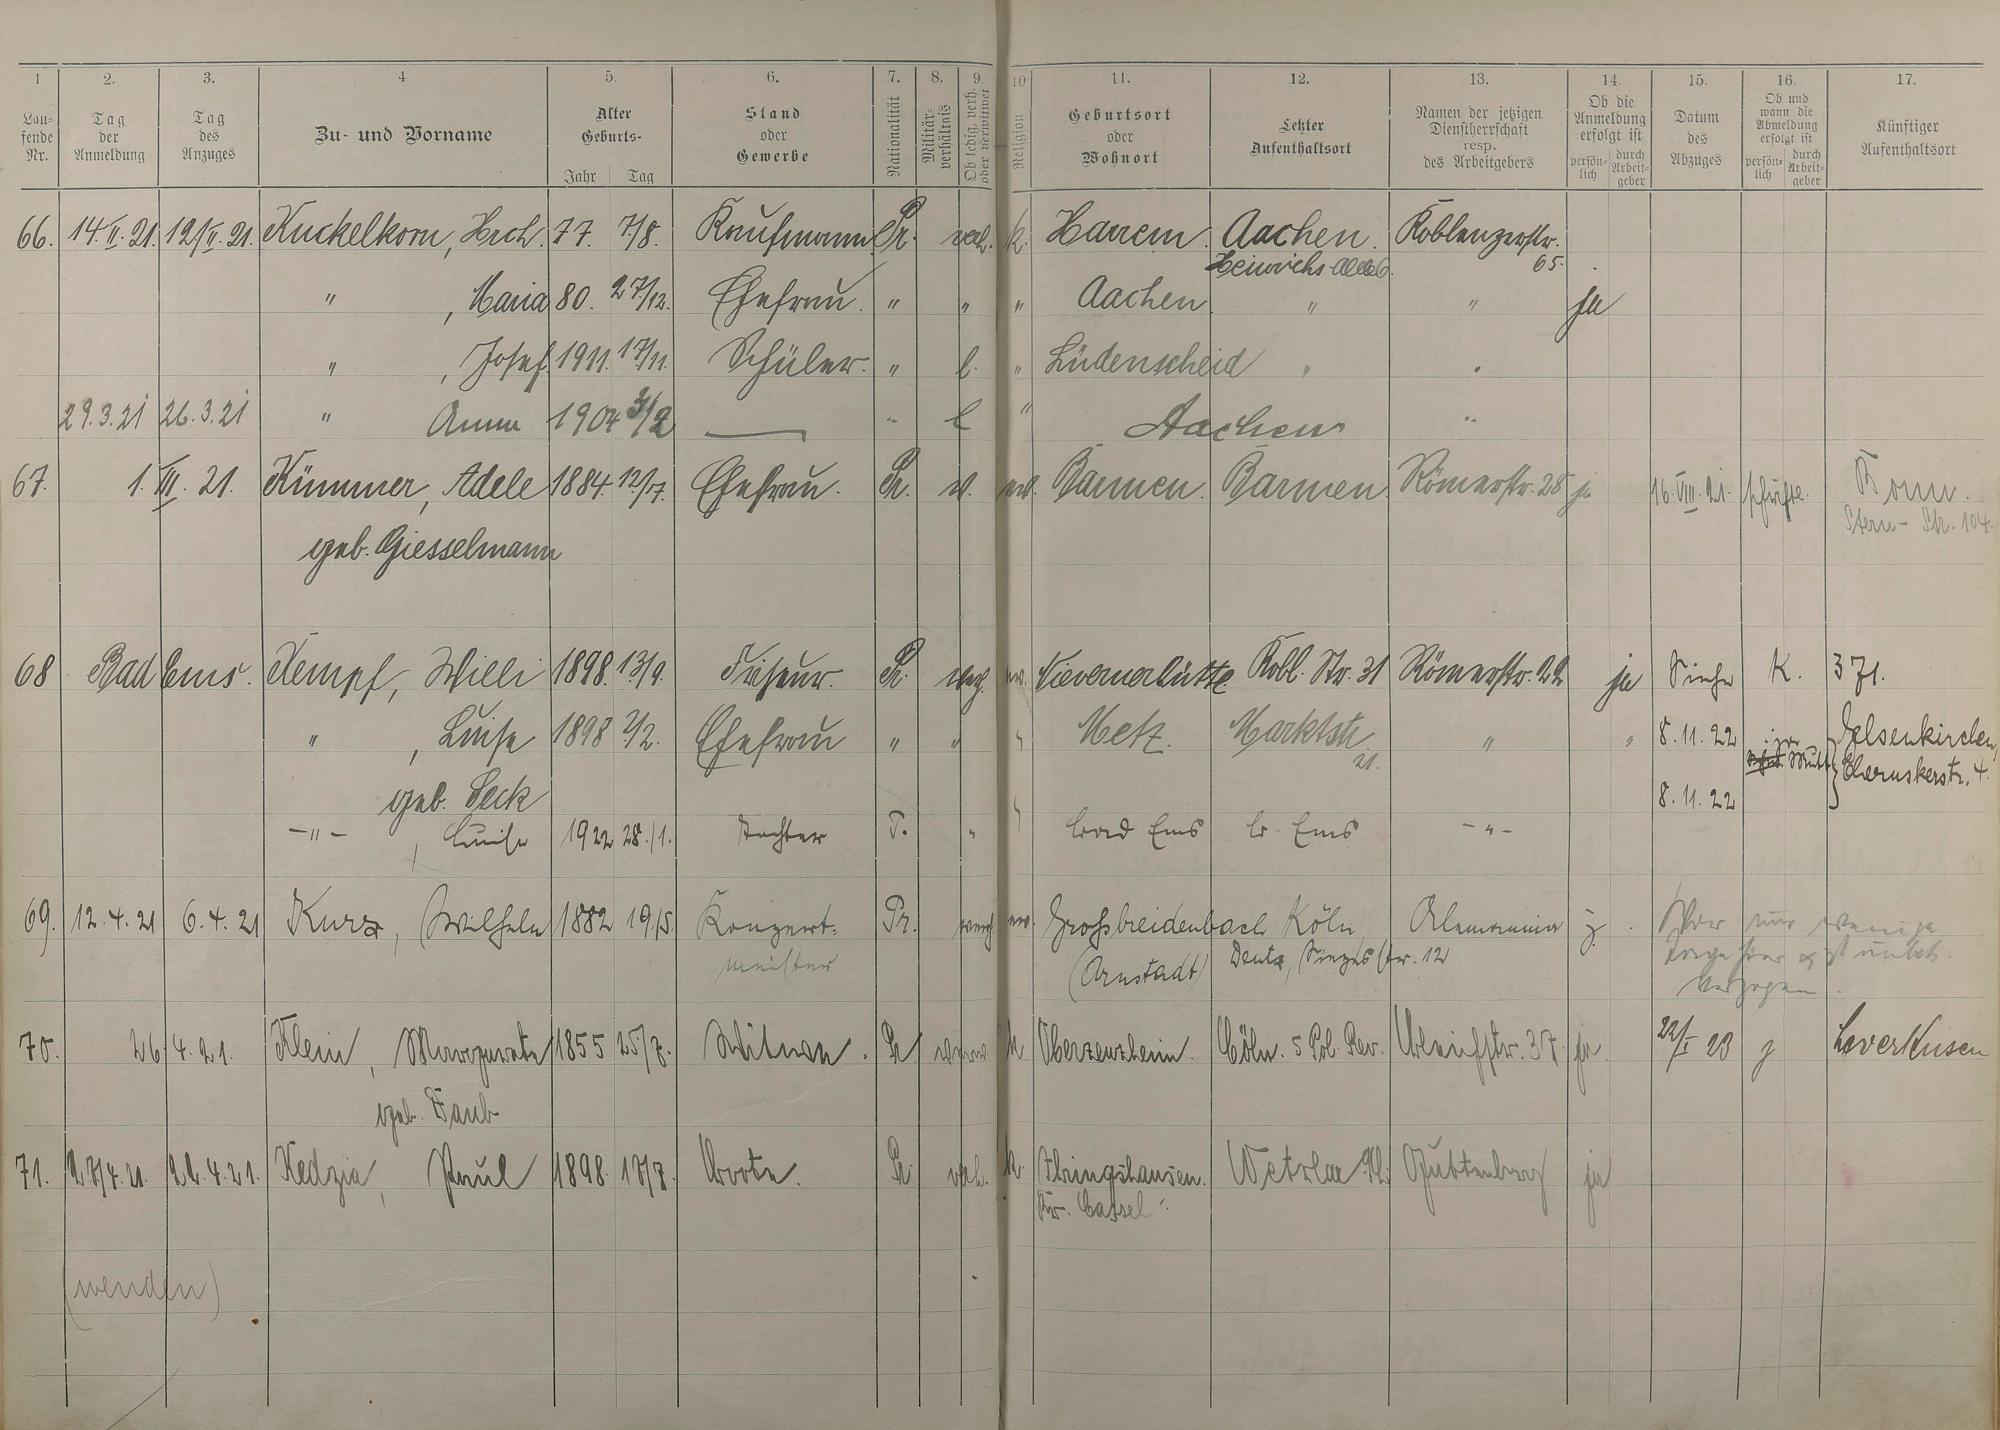 1 2. 3. 4 5. 6. 7. 8. 9. 10 11. 12. 13. 14. 15. 16. 17.
Lau-
fende
Nr.
Tag
der
Anmeldung
Tag
des
Anzuges
Zu- und Vorname
Alter
Geburts-
Jahr Tag
Stand
oder
Gewerbe
Nationalität
Militär-
verhältnis
Ob ledig, verh.
oder verwitwet
Religion
Geburtsort
oder
Wohnort
Letzter
Aufenthaltsort
Namen der jetzigen
Dienstherrschaft
resp.
des Arbeitgebers
Ob die
Anmeldung
erfolgt ist
persön-
lich
durch
Arbeit-
geber
Datum
des
Abzuges
Ob und
wann die
Abmeldung
erfolgt ist
persön-
lich
durch
Arbeit-
geber
Künftiger
Aufenthaltsort
66. 14.II.21. 12/II.21. Kuckelkorn, Hrch. 77. 7/8. Kaufmann Pr. verh. k. Harrem. Aachen. Koblenzerstr.
Heinrichs-Allee 6. 65.
" , Maria 80. 27/12. Ehefrau. " " " Aachen " " ja
" , Josef 1911. 17/11. Schüler. " l. " Lüdenscheid " "
29.3.21 26.3.21 " Anna 1904 — " l " Aachen "
67. 1.III.21. Kümmer, Adele 1884. 12/7. Ehefrau. Pr. v. ev. Barmen. Barmen. Römerstr. 28 ja 16.VIII.21. schriftl. Bonn.
Stern-Str. 104.
geb. Giesselmann
68 Bad Ems. Kempf, Willi 1898. 13/9. Friseur. Pr. verh. ev. Nievernerhütte Kobl. Str. 31 Römerstr. 22 ja Siehe K. 371.
" , Luise 1898 2/2. Ehefrau " " " Metz. Marktstr. " " 8.11.22 Gelsenkirchen,
21. Cheruskerstr. 4.
geb. Seck 8.11.22
–"– , Luise 1922 28./1. Tochter P. " Bad Ems B. Ems –"–
69. 12.4.21 6.4.21 Kurz, Wilhelm 1882 19/5. Konzert- Pr. verh. ev. Grossbreidenbach Köln Alemannia j.
meister (Arnstadt) Deutz, Siegesstr. 12
Hier nur wenige
Tage hier ist unbek.
verzogen.
70. 26.4.21. Klein, Margarete 1855 25/7. Witwe. Pr verw. k. Oberzeuzheim. Cöln. 5 Pol. Rev. Bleichstr. 37. ja. 22/I 23 j Leverkusen
geb. Daub
71. 27/4.21. 22.4.21. Kedzia, Paul 1898. 17/7. Bote. Pr verh. k. Ihringshausen. Wetzlar Guttenberg ja
Kr. Cassel.
(wenden)